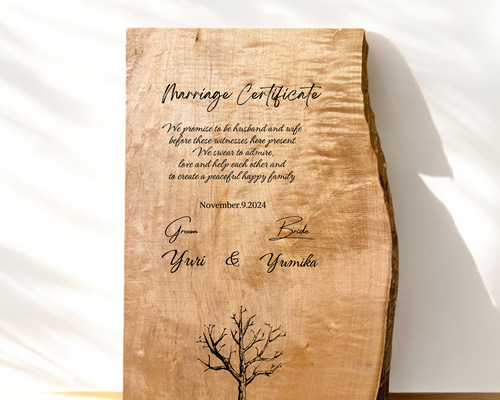 Marriage Certificate
We promise to be husband and wife
before these witnesses here present.
We swear to admire,
love and help each other and
to create a peaceful happy family.
November.9.2024
Groom Bride
Yuri & Yumika